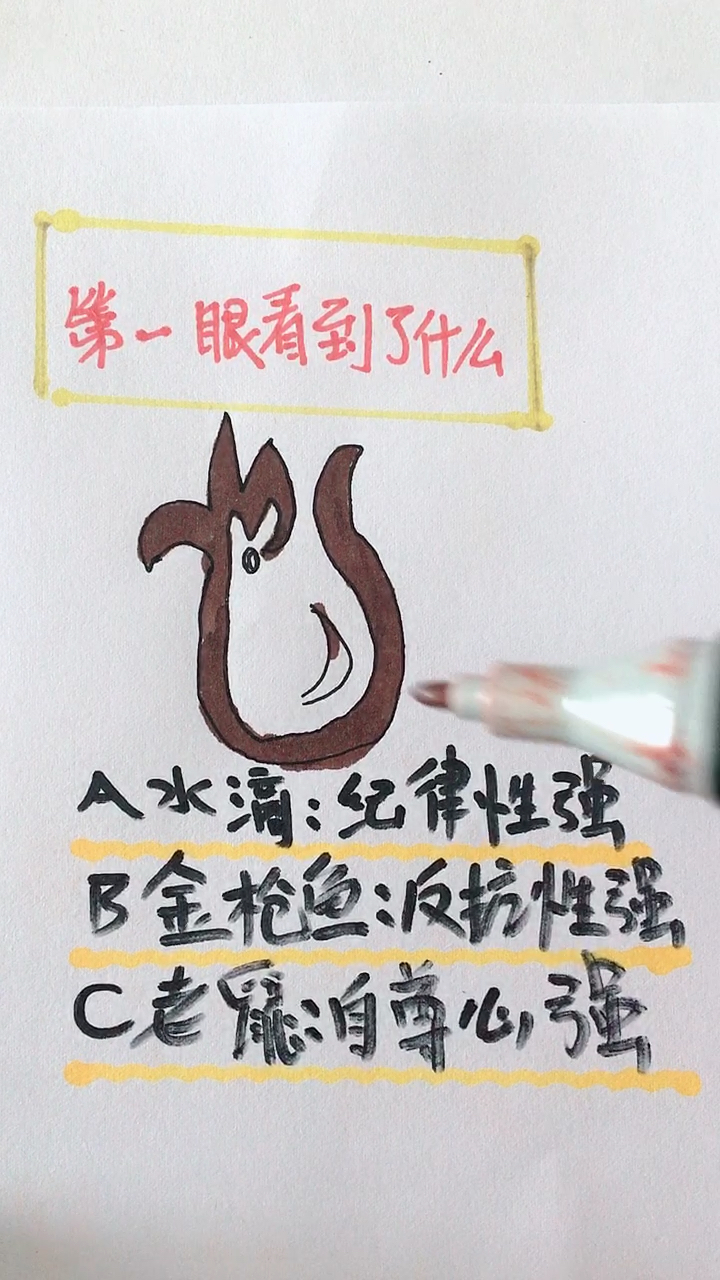 第一眼看到了什么
A水滴:纪律性强
B金枪鱼:反抗性强
C老鼠:自尊心强